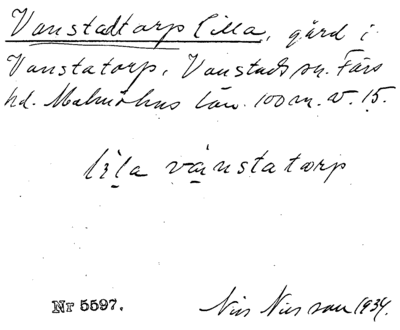 Vanstadtorp Lilla, gård i
Vanstatorp, Vanstads sn. Färs
hd. Malmöhus län. 100 m. V. 15.
lila vanstatorp
Nr 5597.
Nils Nilsson 1934.